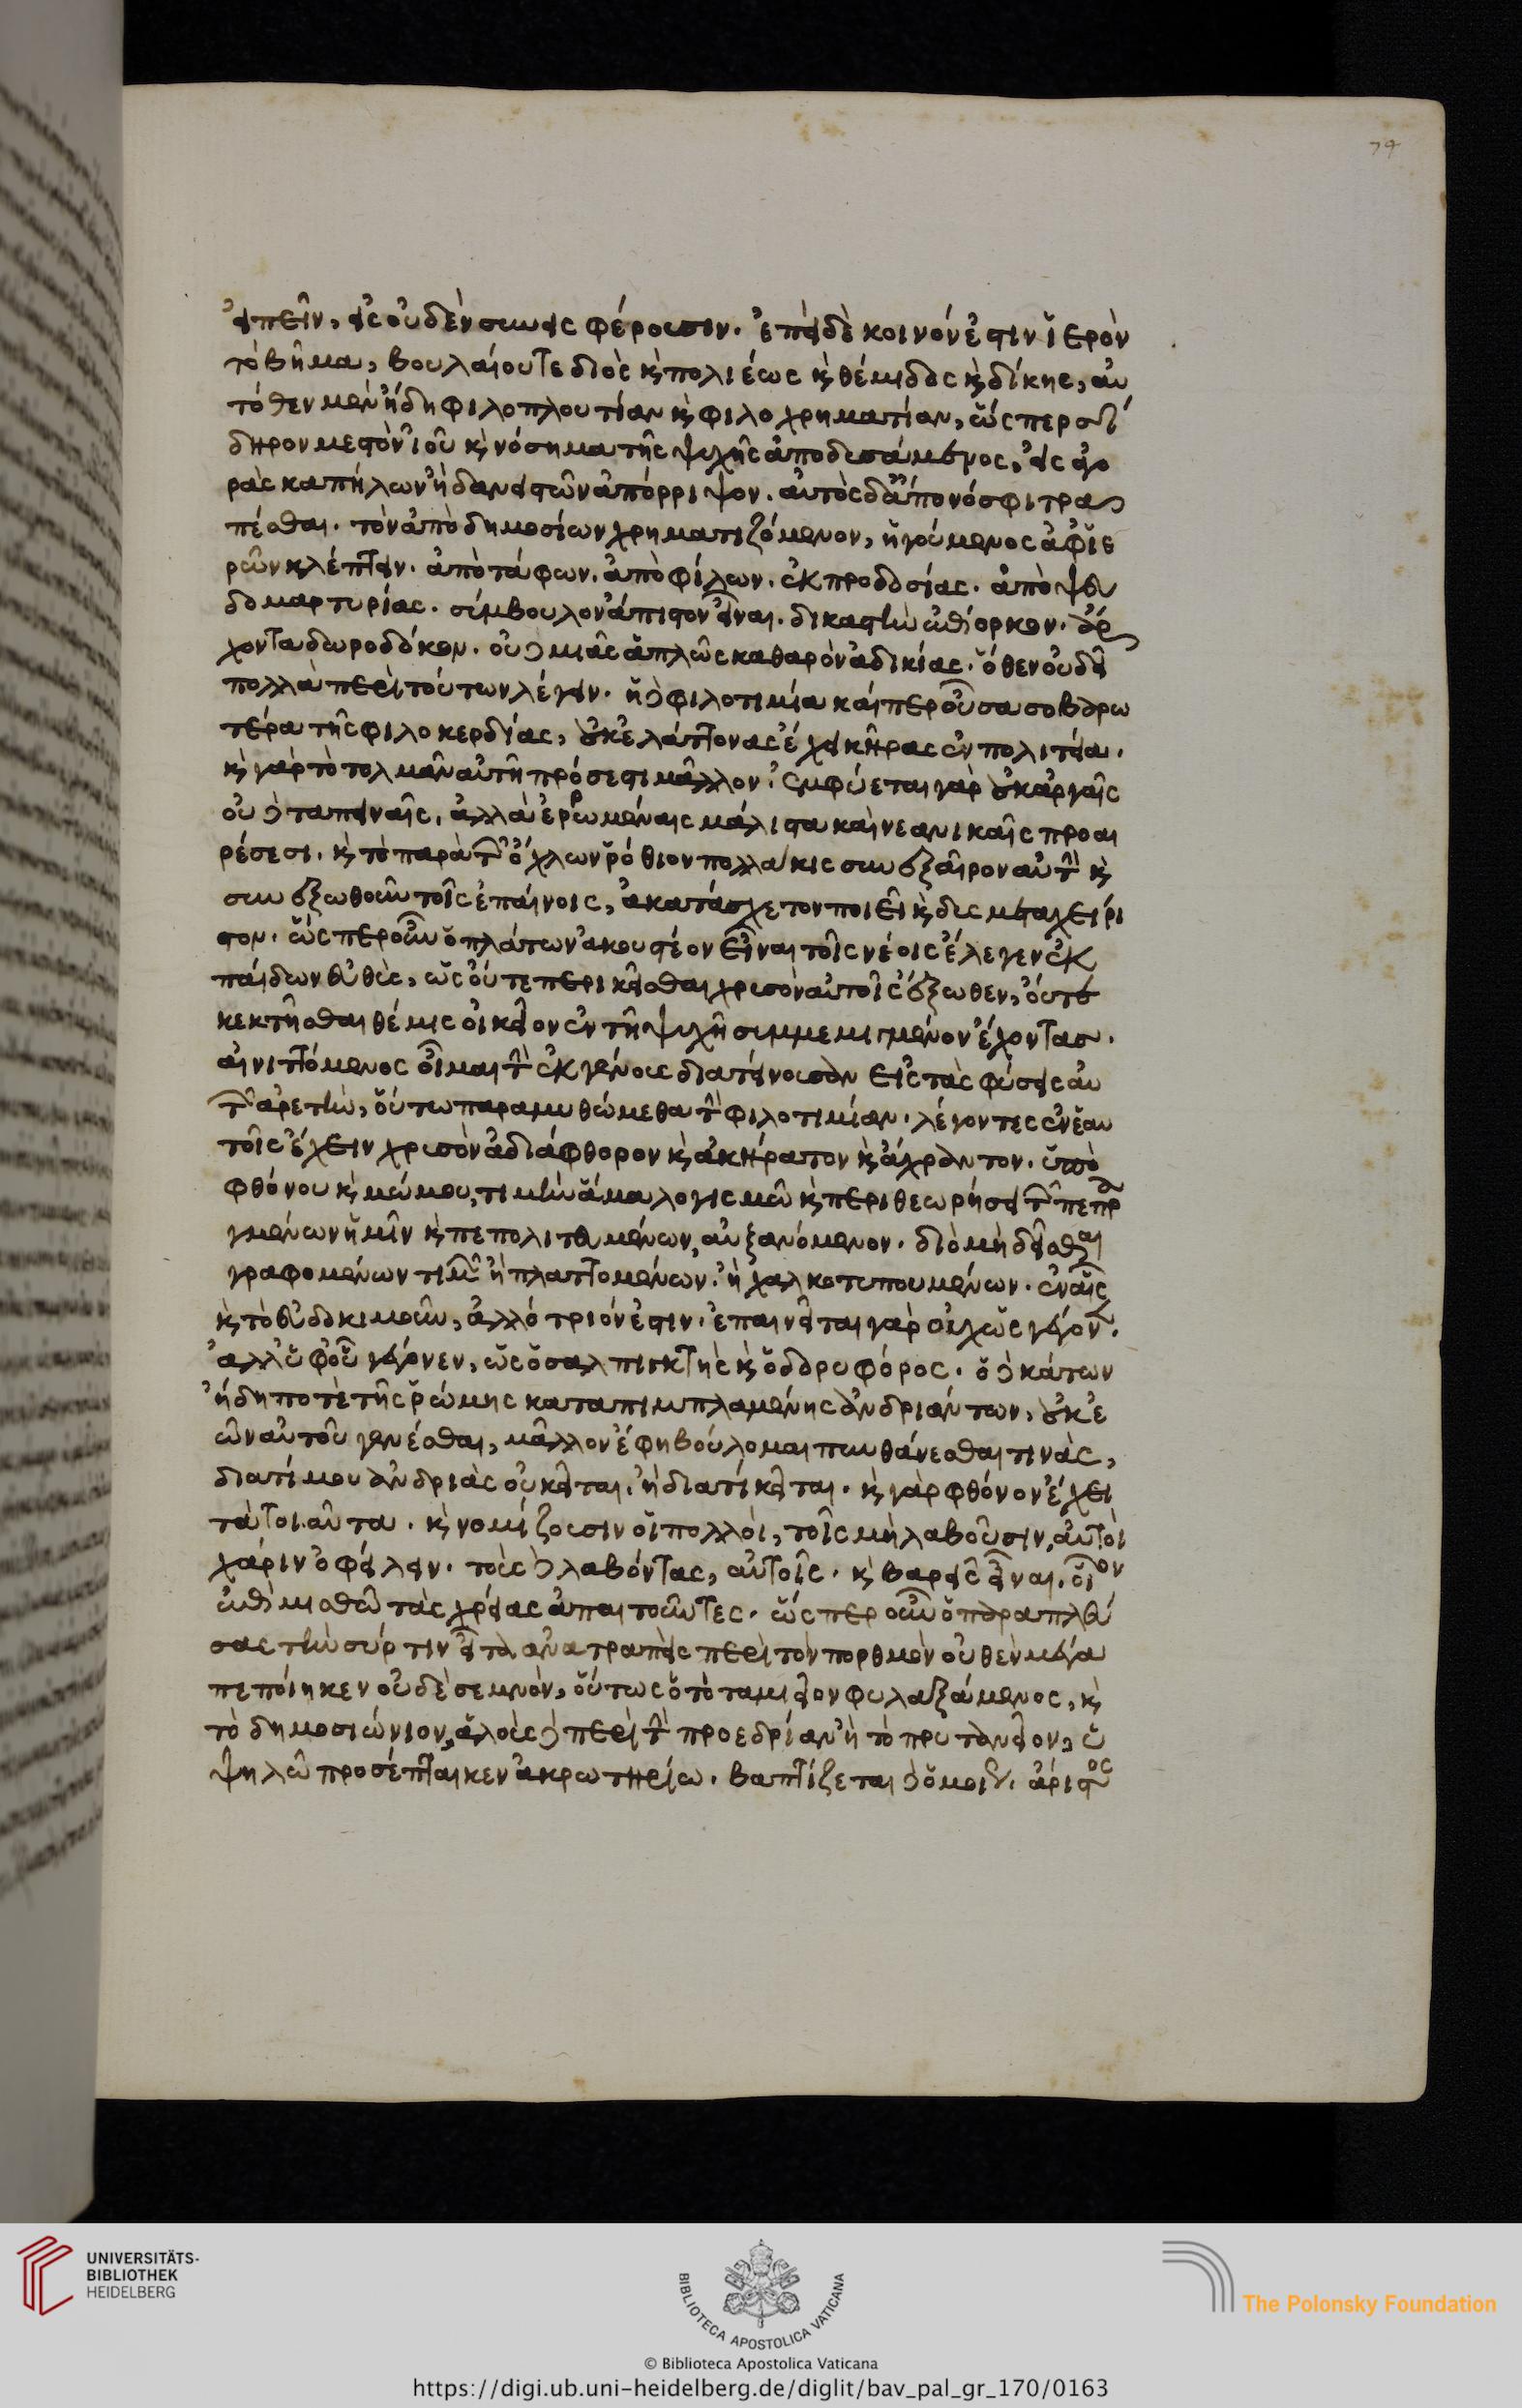 79
εἰπεῖν, εἰς οὐδὲν συνεισφέρουσιν. ἐπεὶ δὲ κοινόν ἐστιν ἱερὸν
τὸ βῆμα, βουλαίου τε διὸς κ πολιέως κ θέμιδος κ δίκης, αὐ
τόθεν μὲν ἤδη φιλοπλουτίαν κ φιλοχρηματίαν, ὥσπερ σί
δηρον μεστὸν ἰοῦ κ νόσημα τῆς ψυχῆς ἀποδυσάμενος, εἰς ἀγο
ρὰς καπήλων ἢ δανειστῶν ἀπόρριψον. αὐτὸς δ' ἀπονόσφι τρα
πέσθαι. τὸν ἀπὸ δημοσίων χρηματιζόμενον, ἡγούμενος ἀφ' ἱε
ρῶν κλέπτειν. ἀπὸ τάφων. ἀπὸ φίλων. ἐκ προδοσίας. ἀπὸ ψευ
δομαρτυρίας. σύμβουλον ἄπιστον εἶναι. δικαστὴν ἐπίορκον. ἄρ
χοντα δωροδόκον. οὐ δ μιᾶς ἁπλῶς καθαρὸν ἀδικίας. ὅθεν οὐ δεῖ
πολλὰ περὶ τούτων λέγειν. ἡ δὲ φιλοτιμία καίπερ οὖσα σοβαρω
τέρα τῆς φιλοκερδίας, οὐκ ἐλάττονας ἔχει κῆρας ἐν πολιτεία.
κ γὰρ τὸ τολμᾶν αὐτῆ πρόσεστι μᾶλλον. ἐμφύεται γὰρ οὐκ ἀργαῖς
οὐ δὲ ταπειναῖς, ἀλλὰ ἐρρωμέναις μάλιστα καὶ νεανικαῖς προαι
ρέσεσι. κ τὸ παρὰ τ ὄχλων ῥόθιον πολλάκις συνεξαῖρον αὐτὴν κ
συνεξωθοῦν τοῖς ἐπαίνοις, ἀκατάσχετον ποιεῖ κ δυσμεταχείρι
στον. ὥσπερ οὖν ὁ πλάτων ἀκουστέον εἶναι τοῖς νέοις ἔλεγεν ἐκ
παίδων εὐθὺς, ὡς οὔτε περικεῖσθαι χρυσὸν αὐτοῖς ἔξωθεν, οὔτε
κεκτῆσθαι θέμις οἰκεῖον ἐν τῆ ψυχῆ συμμεμιγμένον ἔχοντας.
αἰνιττόμενος οἶμαι τὴν ἐκ γένους διατείνουσαν εἰς τὰς φύσεις αὐ
τῶν ἀρετὴν, οὕτω παραμυθώμεθα τὴν φιλοτιμίαν. λέγοντες ἐν ἑαυ
τοῖς ἔχειν χρυσὸν ἀδιάφθορον κ ἀκήρατον κ ἄχραντον. ὑπὸ
φθόνου κ μώμου, τιμὴν ἅμα λογισμῶ κ περιθεωρήσει τῶν πεπρα
γμένων ἡμῖν κ πεπολιτευμένων, αὐξανόμενον. διὸ μὴ δεῖσθαι
γραφομένων τιμῶν ἢ πλαττομένων. ἢ χαλκοτυπουμένων. ἐν αἷς
κ τὸ εὐδοκιμοῦν, ἀλλότριόν ἐστιν. ἐπαινεῖται γὰρ οὐχ ὡς γέγονεν.
ἀλλ' ὑφ' οὗ γέγονεν, ὡς ὁ σαλπιγκτὴς κ ὁ δορυφόρος. ὁ δὲ κάτων
ἤδη ποτὲ τῆς ῥώμης καταπιμπλαμένης ἀνδριάντων, οὐκ ἐ
ῶν αὐτοῦ γενέσθαι, μᾶλλον ἔφη βούλομαι πυνθάνεσθαι τινὰς,
διατί μου ἀνδριὰς οὐ κεῖται. ἢ διατί κεῖται. κ γὰρ φθόνον ἔχει
τὰ τοιαῦτα. κ νομίζουσιν οἱ πολλοὶ, τοῖς μὴ λαβοῦσιν, αὐτοὶ
χάριν ὀφείλειν. τοὺς δὲ λαβόντας, αὐτοῖς. κ βαρεῖς εἶναι. οἷον
ἐπὶ μισθῶ τὰς χρείας ἀπαιτοῦντες. ὥσπερ οὖν ὁ παραπλεύ
σας τὴν σύρτιν εἶτα ἀνατραπεὶς περὶ τὸν πορθμὸν οὐθὲν μέγα
πεποίηκεν οὐδὲ σεμνὸν, οὕτως ὁ τὸ ταμιεῖον φυλαξάμενος, κ
τὸ δημοσιώνιον, ἁλοὺς δὲ περὶ τὴν προεδρίαν ἢ τὸ πρυτανεῖον, ὑ
ψηλῶ προσέπταικεν ἀκρωτηρίω. βαπτίζεται δὲ ὁμοίως. ἄριστος
UNIVERSITÄTS-
BIBLIOTHEK
HEIDELBERG
BIBLIOTECA APOSTOLICA VATICANA
The Polonsky Foundation
© Biblioteca Apostolica Vaticana
https://digi.ub.uni-heidelberg.de/diglit/bav_pal_gr_170/0163